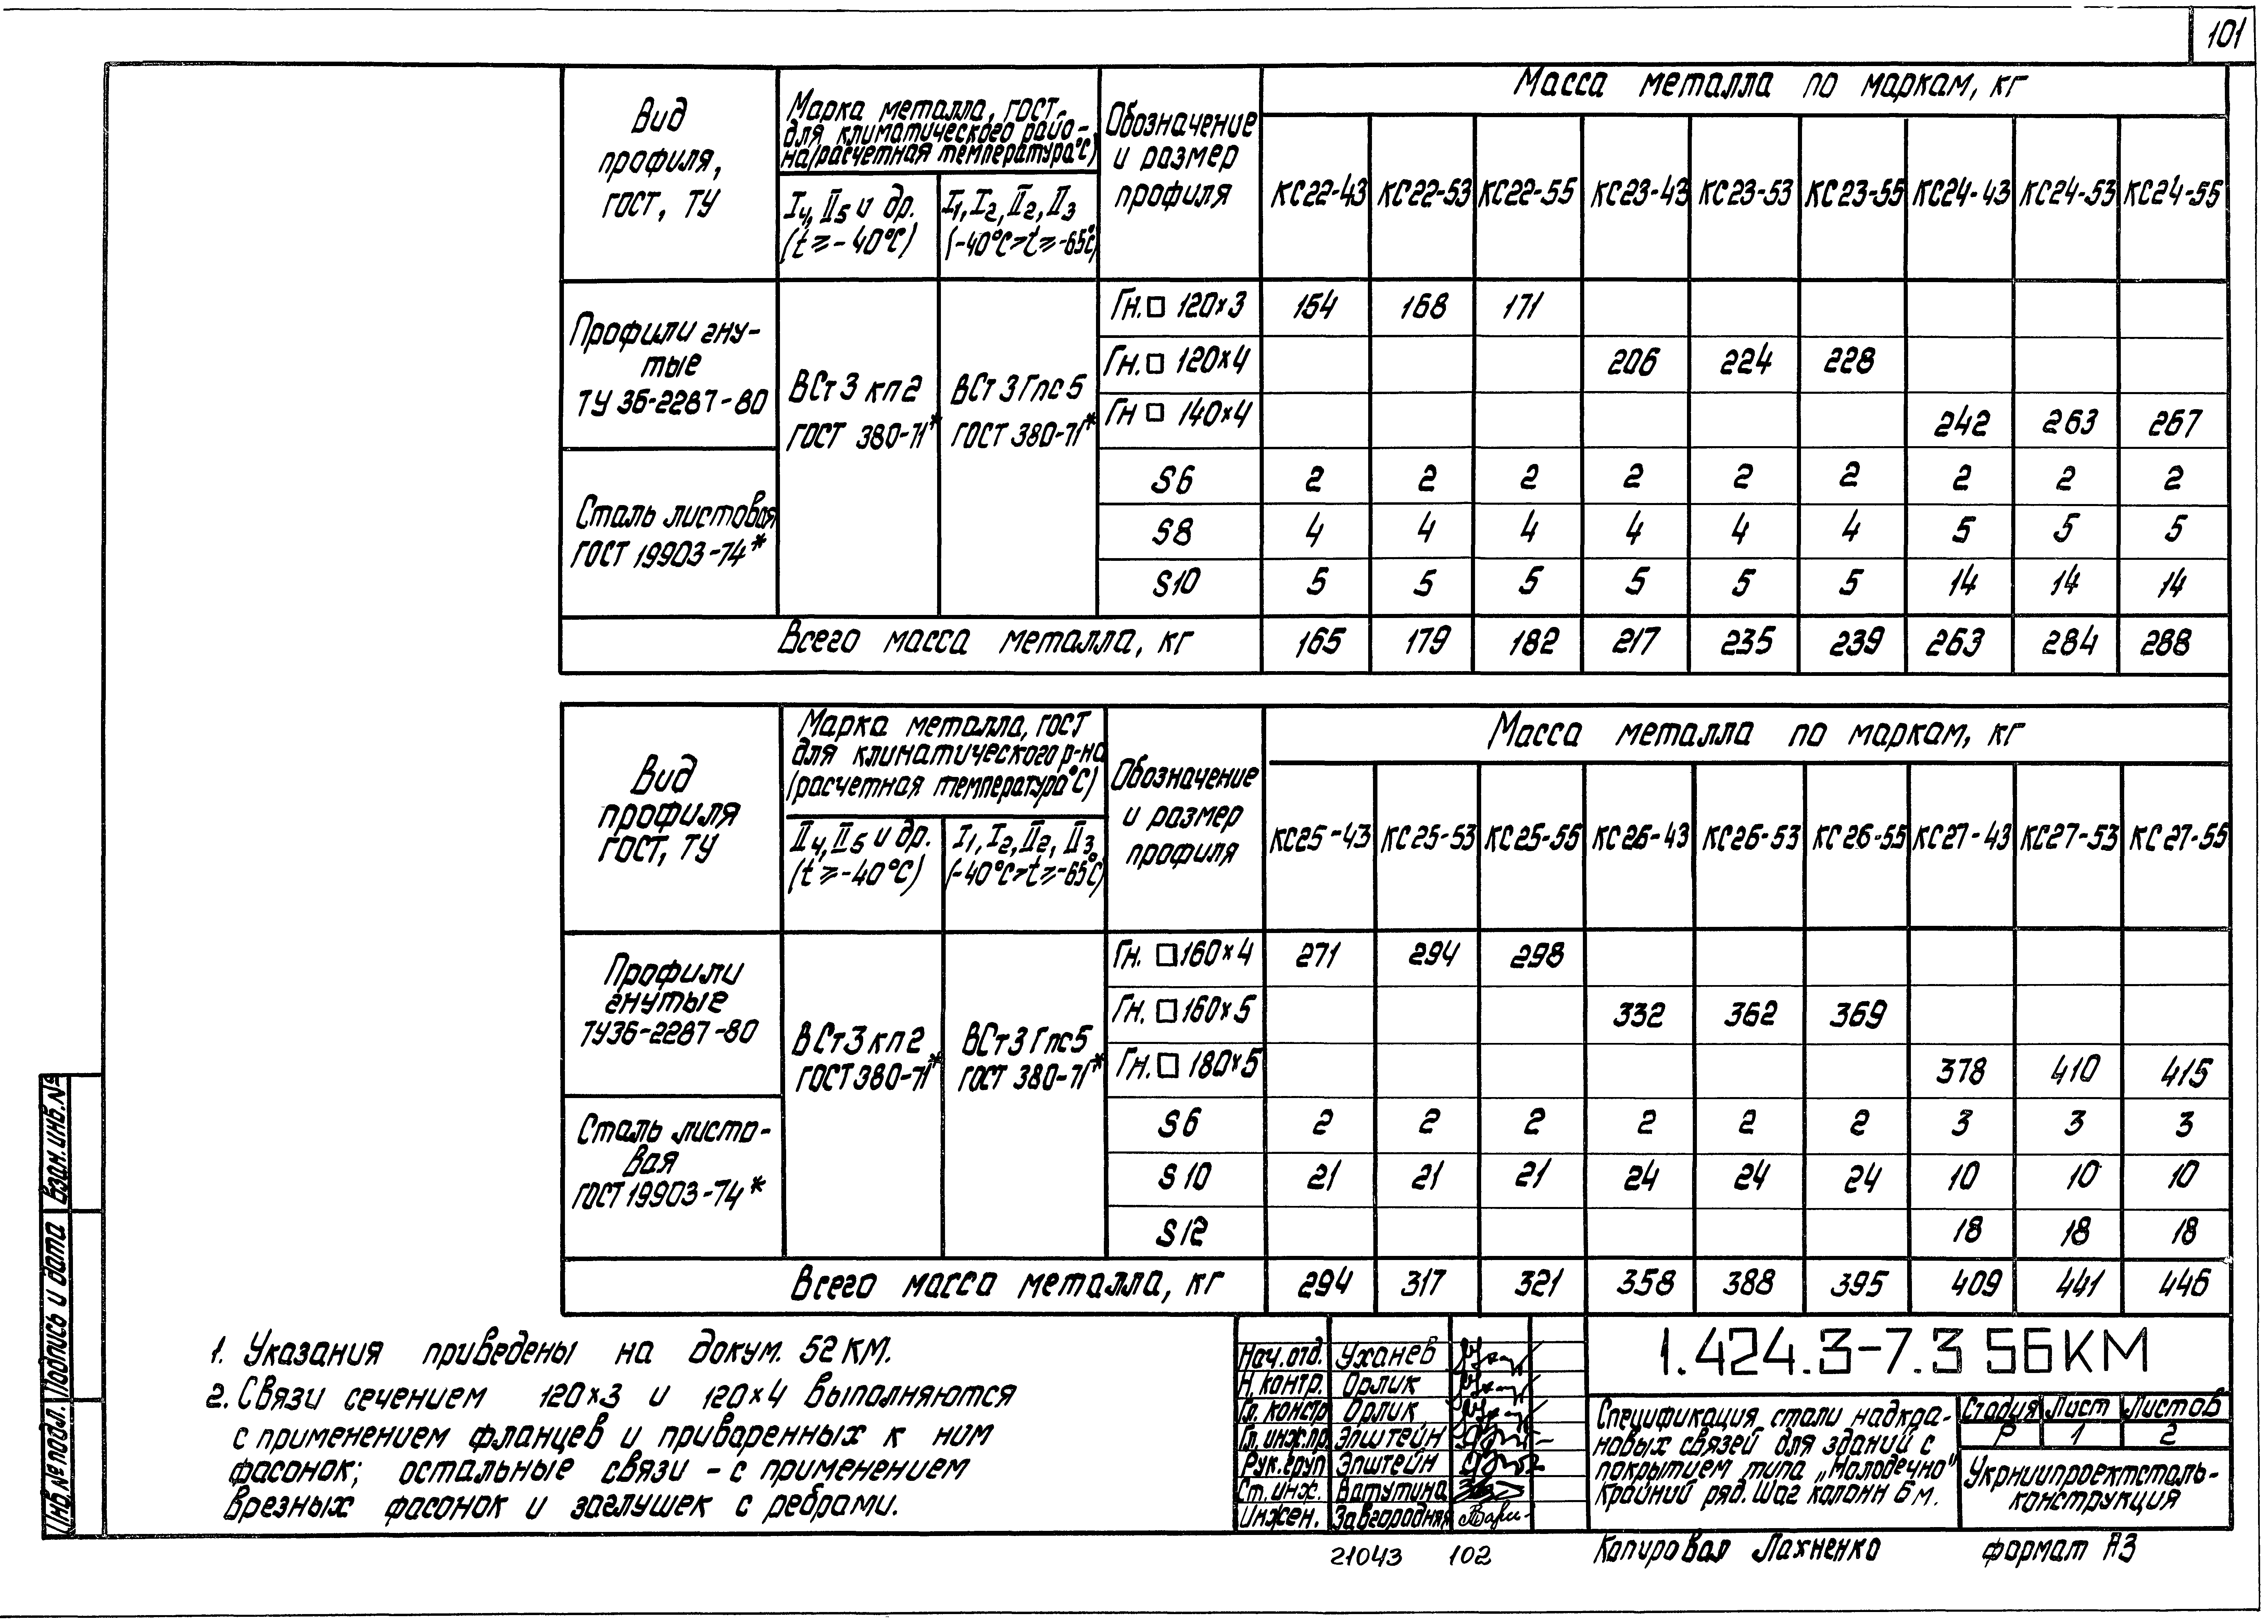 101
Вид профиля, ГОСТ, ТУ
Марка металла, ГОСТ, для климатического райо-на (расчетная температура °С)
I₄, II₅ и др. (t ≥ -40°С)
I₁, I₂, II₂, II₃ (-40°С > t ≥ -65°С)
Обозначение и размер профиля
Масса металла по маркам, кг
КС22-43 КС22-53 КС22-55 КС23-43 КС23-53 КС23-55 КС24-43 КС24-53 КС24-55
Профили гну-тые ТУ 36-2287-80
ВСт3кп2 ГОСТ 380-71*
ВСт3Гпс5 ГОСТ 380-71*
Гн. □ 120×3 154 168 171
Гн. □ 120×4 206 224 228
Гн □ 140×4 242 263 267
Сталь листовая ГОСТ 19903-74*
S6 2 2 2 2 2 2 2 2 2
S8 4 4 4 4 4 4 5 5 5
S10 5 5 5 5 5 5 14 14 14
Всего масса металла, кг 165 179 182 217 235 239 263 284 288
Вид профиля ГОСТ, ТУ
Марка металла, ГОСТ для климатического р-на (расчетная температура °С)
II₄, II₅ и др. (t ≥ -40°С)
I₁, I₂, II₂, II₃ (-40°С > t ≥ -65°С)
Обозначение и размер профиля
Масса металла по маркам, кг
КС25-43 КС25-53 КС25-55 КС26-43 КС26-53 КС26-55 КС27-43 КС27-53 КС27-55
Профили гнутые ТУ36-2287-80
ВСт3кп2 ГОСТ 380-71*
ВСт3Гпс5 ГОСТ 380-71*
Гн. □ 160×4 271 294 298
Гн. □ 160×5 332 362 369
Гн. □ 180×5 378 410 415
Сталь листо-вая ГОСТ 19903-74*
S6 2 2 2 2 2 2 3 3 3
S10 21 21 21 24 24 24 10 10 10
S12 18 18 18
Всего масса металла, кг 294 317 321 358 388 395 409 441 446
1. Указания приведены на докум. 52КМ.
2. Связи сечением 120×3 и 120×4 выполняются
с применением фланцев и приваренных к ним
фасонок; остальные связи - с применением
врезных фасонок и заглушек с ребрами.
Инв.№ подл. Подпись и дата Взам.инв.№
Нач.отд. Уханев
Н.контр. Орлик
Гл. констр Орлик
Гл. инж.пр. Эпштейн
Рук.груп Эпштейн
Ст. инж. Ватутина
Инжен. Завгородняя
1.424.3-7.3 56КМ
Спецификация стали надкра-
новых связей для зданий с
покрытием типа „Молодечно"
Крайний ряд. Шаг колонн 6 м.
Стадия Лист Листов
Р 1 2
Укрниипроектсталь-
конструкция
21043 102
Копировал Лахненко
формат А3